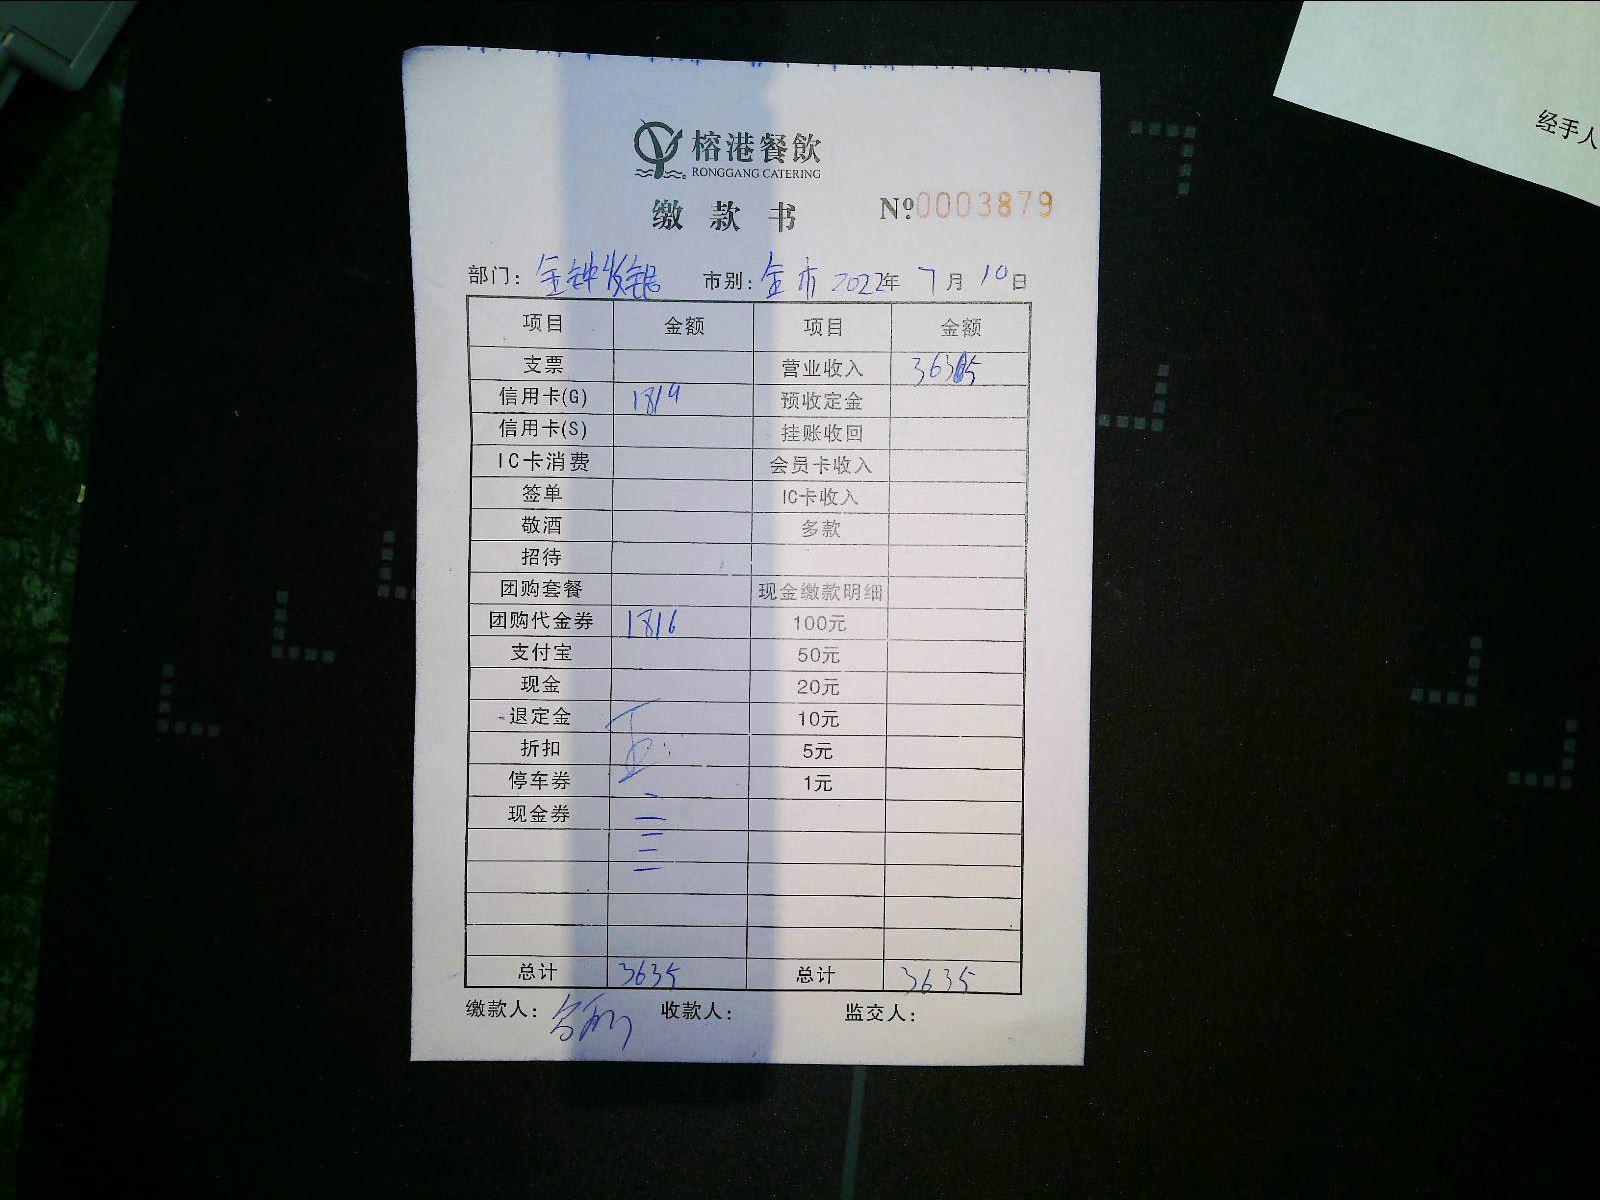 榕港餐飲
RONGGANG CATERING
缴款书 Nº:0003879
部门: 金钟 市别: 全市 2022年 7月 10日
项目 金额 项目 金额
支票 营业收入 3635
信用卡(G) 1819 预收定金
信用卡(S) 挂账收回
IC卡消费 会员卡收入
签单 IC卡收入
敬酒 多款
招待
团购套餐 现金缴款明细
团购代金券 1816 100元
支付宝 50元
现金 20元
-退定金 10元
折扣 5元
停车券 1元
现金券
总计 3635 总计 3635
缴款人: 收款人: 监交人:
经手人